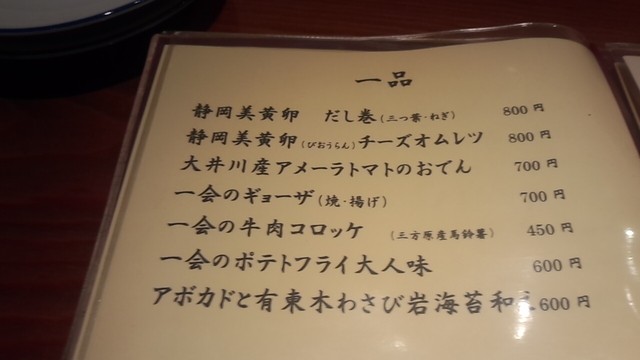 一品
静岡美黄卵　だし巻(三つ葉・ねぎ)　800円
静岡美黄卵(びおうらん)チーズオムレツ　800円
大井川産アメーラトマトのおでん　700円
一会のギョーザ(焼・揚げ)　700円
一会の牛肉コロッケ　(三方原産馬鈴薯)　450円
一会のポテトフライ大人味　600円
アボカドと有東木わさび岩海苔和え　600円